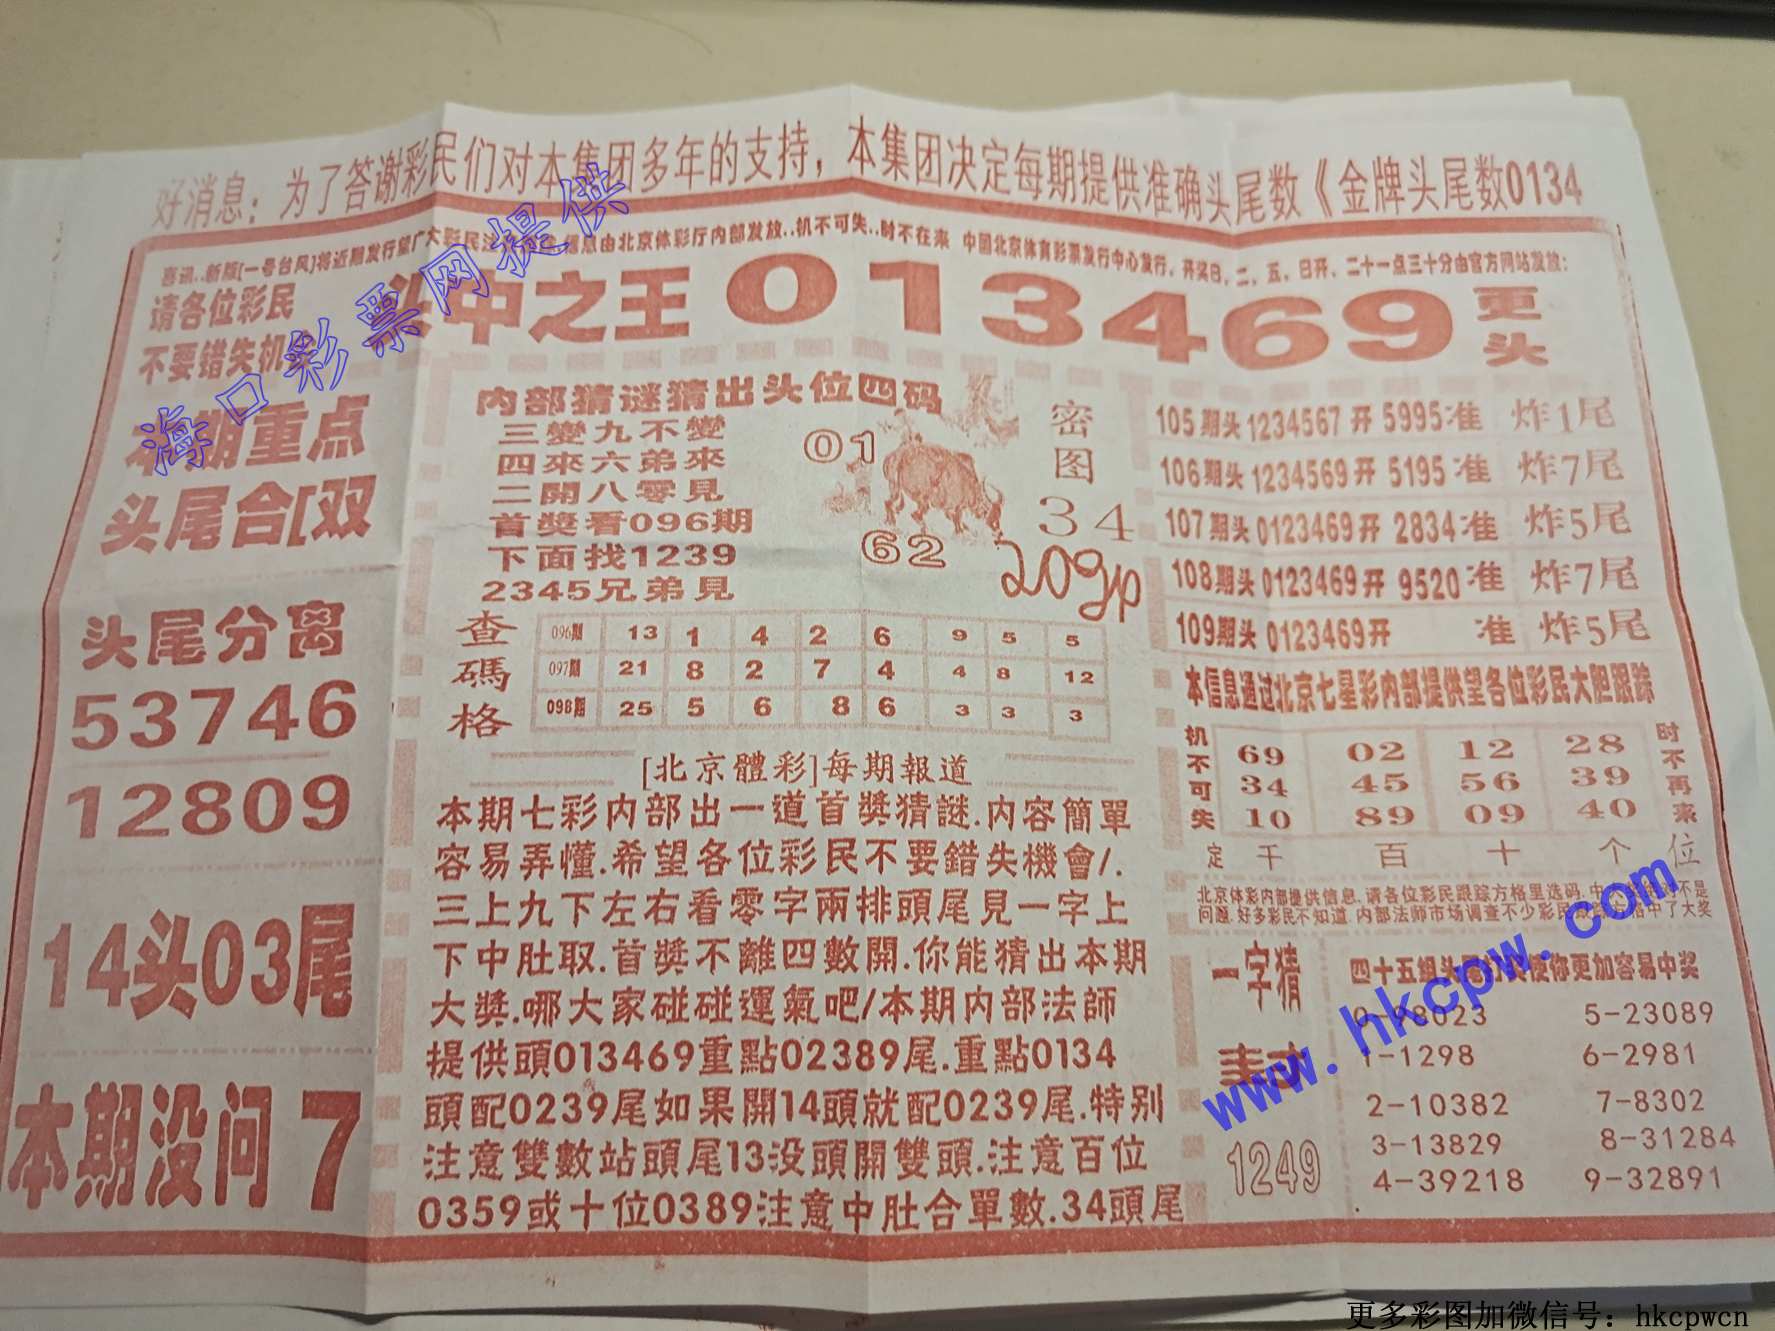 好消息：为了答谢彩民们对本集团多年的支持，本集团决定每期提供准确头尾数《金牌头尾数0134
喜讯..新版[一号台风]将近期发行望广大彩民注 信息由北京体彩厅内部发放..机不可失..时不在来 中国北京体育彩票发行中心发行，开奖日，二、五、日开、二十一点三十分由官方网站发放：
请各位彩民
不要错失机会
头中之王 013469 更头
本期重点
头尾合[双
头尾分离
53746
12809
14头03尾
本期没问 7
内部猜谜猜出头位四码
三變九不變
四來六弟來
二開八零見
首獎看096期
下面找1239
2345兄弟見
01
62
密图
34
209gp
查碼格
096期 13 1 4 2 6 9 5 5
097期 21 8 2 7 4 4 8 12
098期 25 5 6 8 6 3 3 3
[北京體彩]每期報道
本期七彩内部出一道首獎猜謎.内容簡單
容易弄懂.希望各位彩民不要錯失機會/.
三上九下左右看零字兩排頭尾見一字上
下中肚取.首獎不離四數開.你能猜出本期
大獎.哪大家碰碰運氣吧/本期内部法師
提供頭013469重點02389尾.重點0134
頭配0239尾如果開14頭就配0239尾.特别
注意雙數站頭尾13没頭開雙頭.注意百位
0359或十位0389注意中肚合單數.34頭尾
105期头1234567开5995准 炸1尾
106期头1234569开5195准 炸7尾
107期头0123469开2834准 炸5尾
108期头0123469开9520准 炸7尾
109期头0123469开 准 炸5尾
本信息通过北京七星彩内部提供望各位彩民大胆跟踪
机不可失
69 02 12 28
34 45 56 39
10 89 09 40
时不再来
定 千 百 十 个 位
北京体彩内部提供信息.请各位彩民跟踪方格里选码.中大奖 不是
问题.好多彩民不知道.内部法师市场调查不少彩民 中了大奖
一字猜
1249
四十五组头尾 使你更加容易中奖
0-98023 5-23089
1-1298 6-2981
2-10382 7-8302
3-13829 8-31284
4-39218 9-32891
海口彩票网提供
www.hkcpw.com
更多彩图加微信号：hkcpwcn